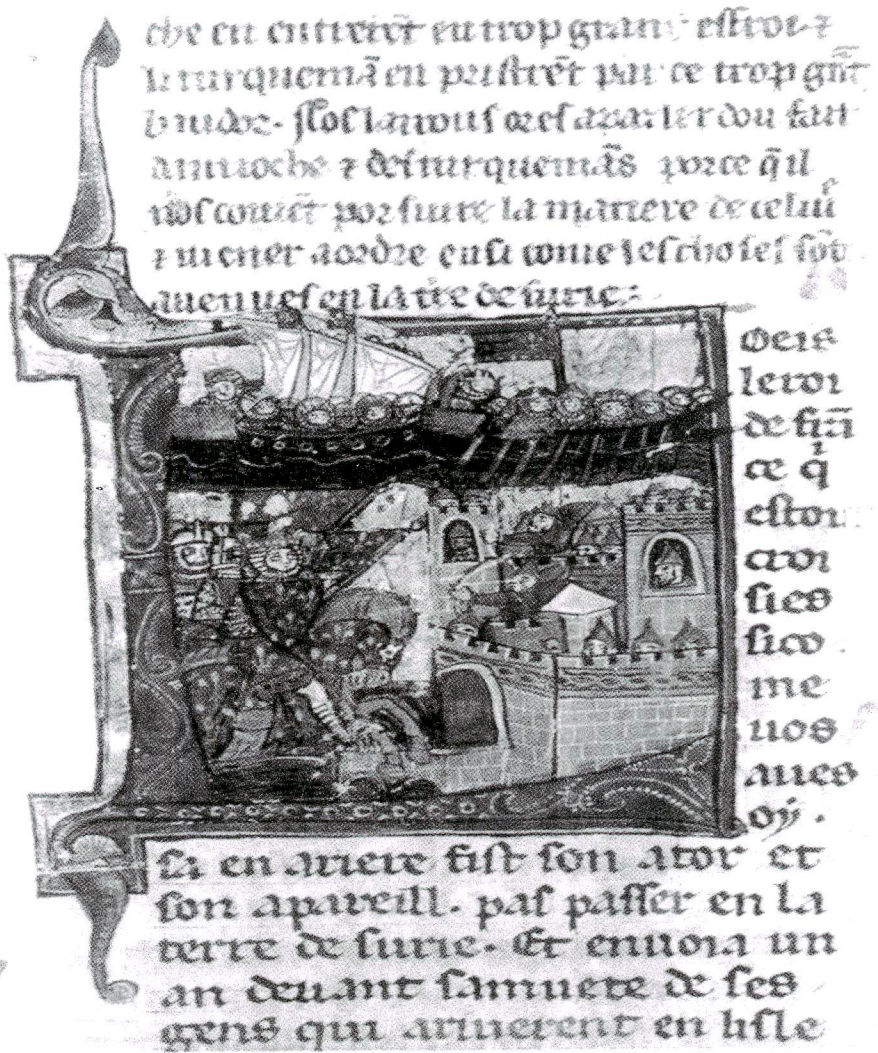 che en entrerēt en trop grant effroi ⁊
li turquemā en pristrēt par ce trop grāt
baudor. Nos lairous ores a parler dou fait
antioche ⁊ des turquemās porce q̄ il
nos couiēt por suire la matiere de celiure
⁊ mener a ordre ensi come les choses sōt
auenues en la t̄re de surie:
oeis
le roi
de frā
ce qͥ
estoit
croi
sies
si co
me
uos
aues
oÿ.
sa en ariere fist son ator et
son apareill. pas passer en la
terre de surie. Et enuoia un
an deuant sa muete de ses
gens qui ariuerent en lisle